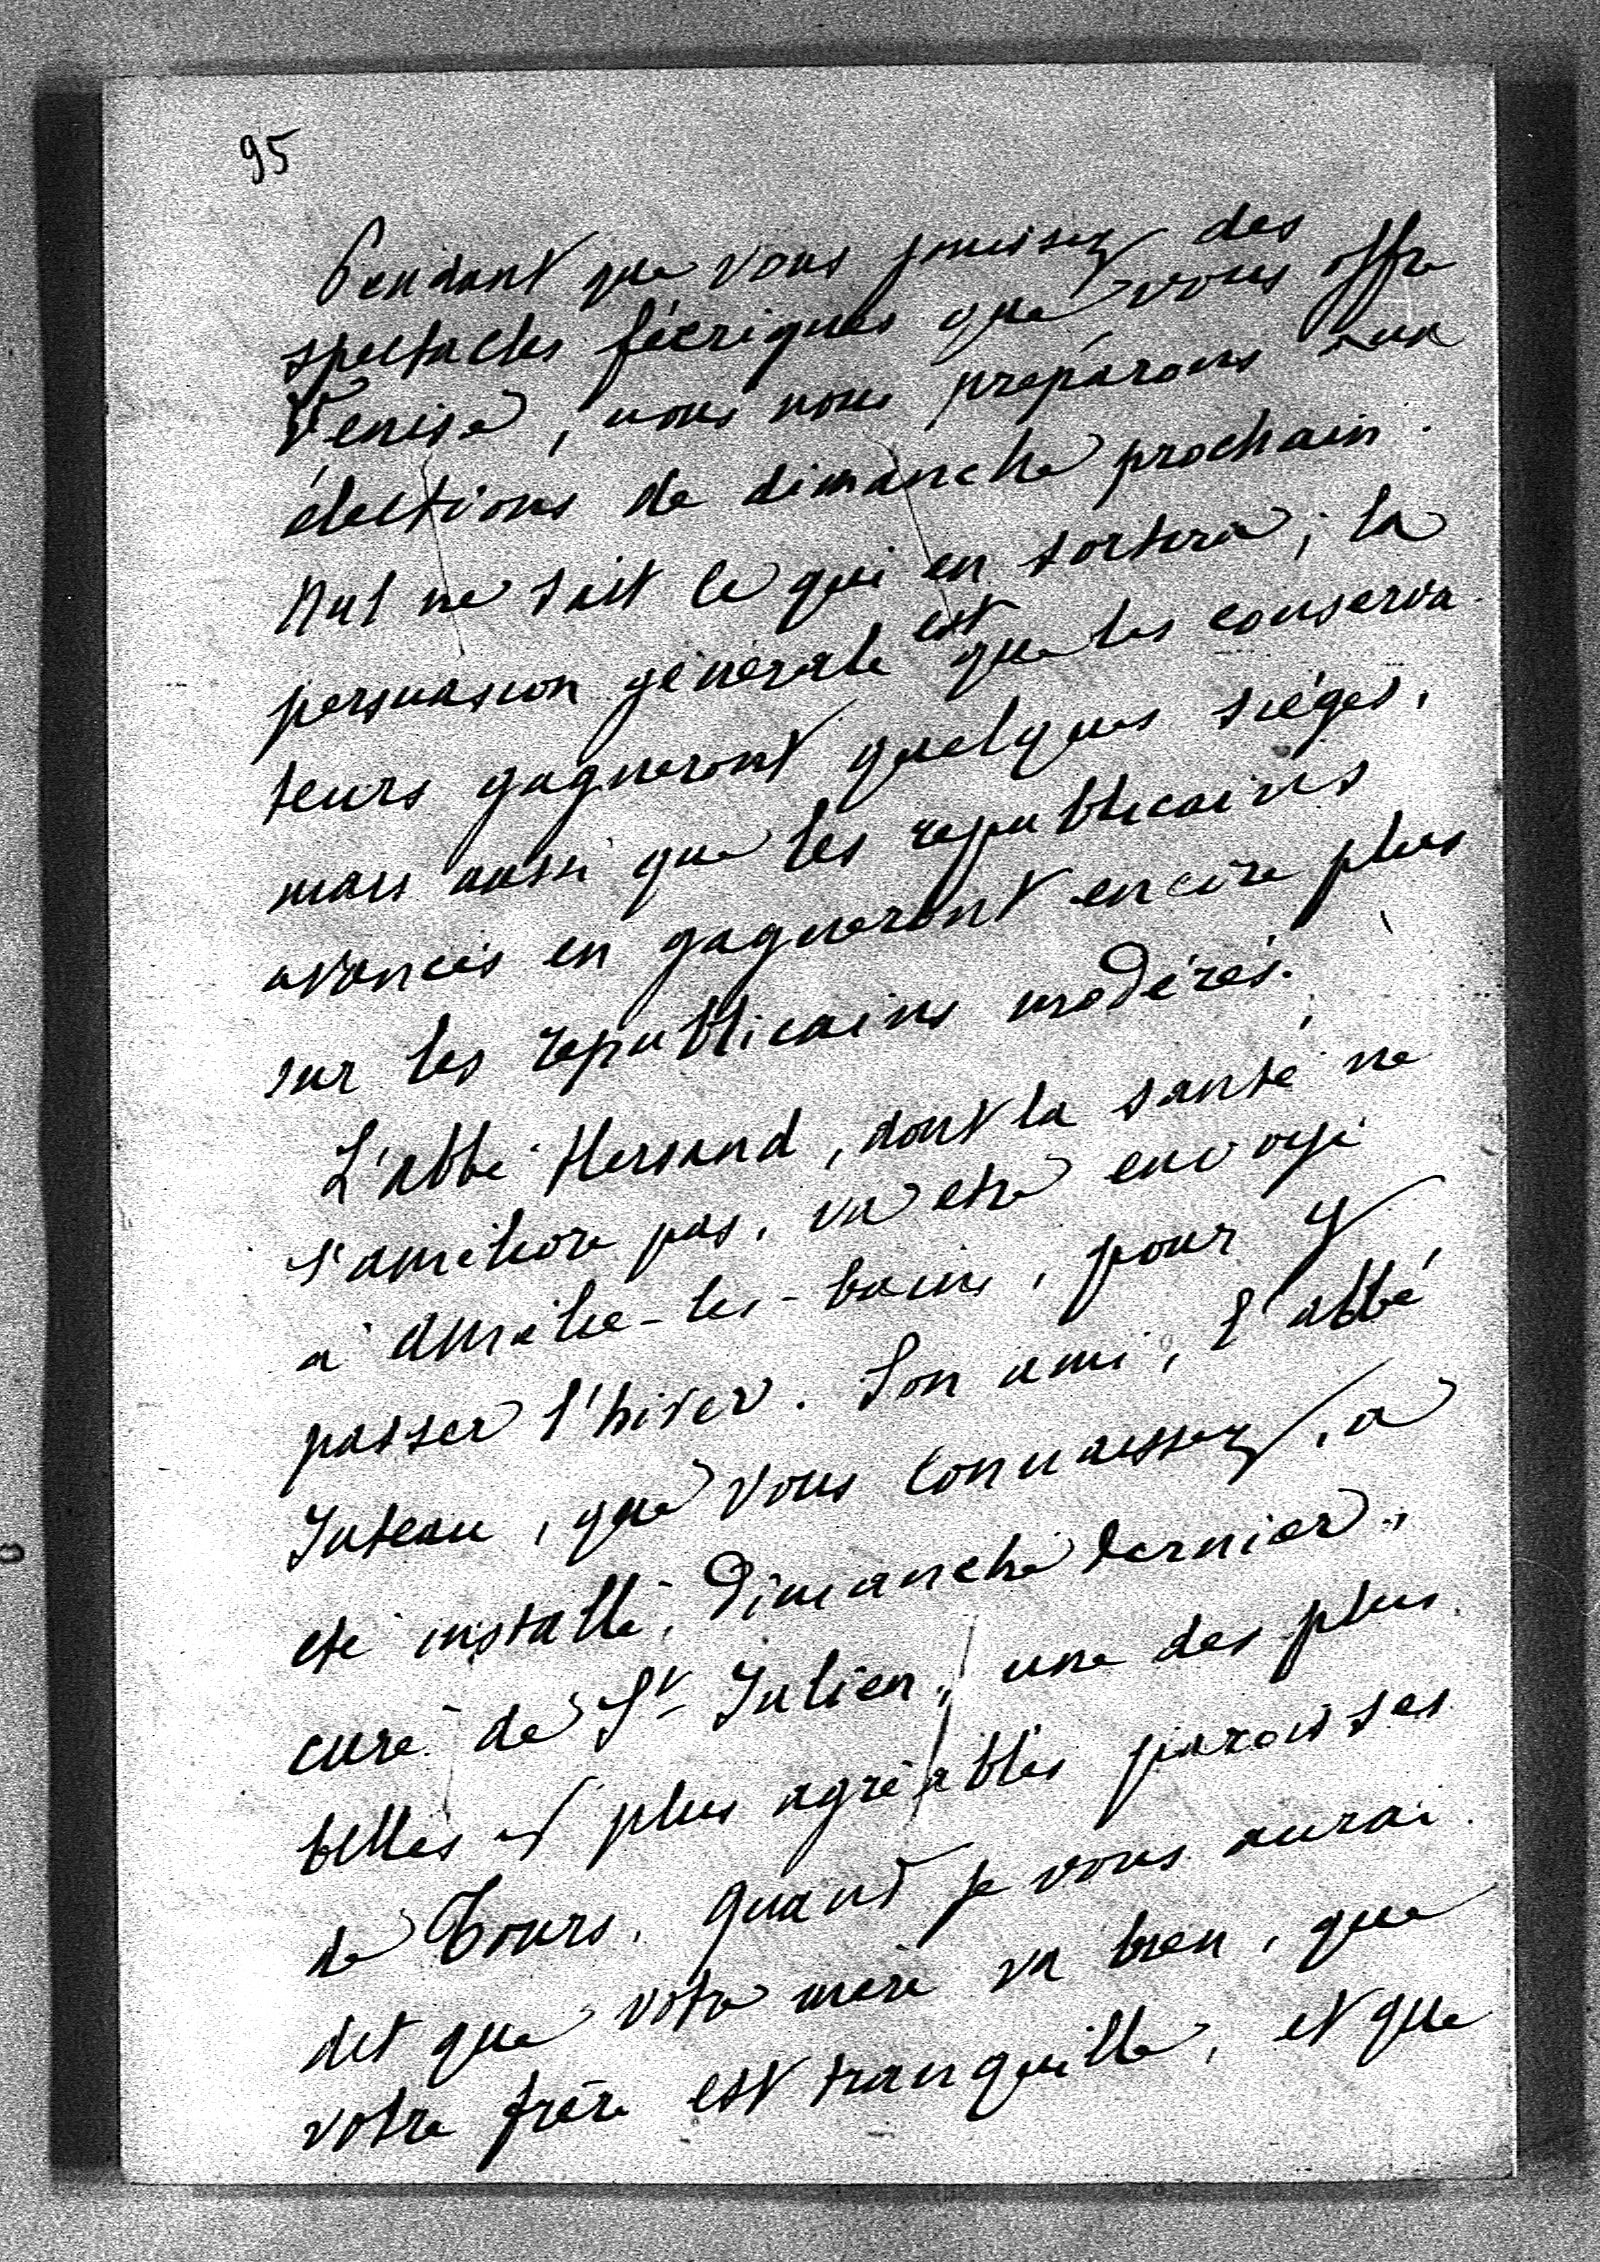 95
Pendant que vous jouissez des
spectacles féeriques que vous offre
Venise, nous nous préparons aux
élections de dimanche prochain.
Nul ne sait ce qui en sortira ; la
persuasion générale est que les conserva-
teurs gagneront quelques sièges,
mais aussi que les républicains
avancés en gagneront encore plus
sur les républicains modérés.
L'abbé Hersand, dont la santé ne
s'améliore pas, va etre envoyé
à Amélie-les-bains, pour y
passer l'hiver. Son ami, l'abbé
Juteau, que vous connaissez, a
été installé, Dimanche dernier,
curé de St Julien, une des plus
belles et plus agréables paroisses
de Tours. Quand je vous aurai
dit que votre mère va bien, que
votre frère est tranquille, et que